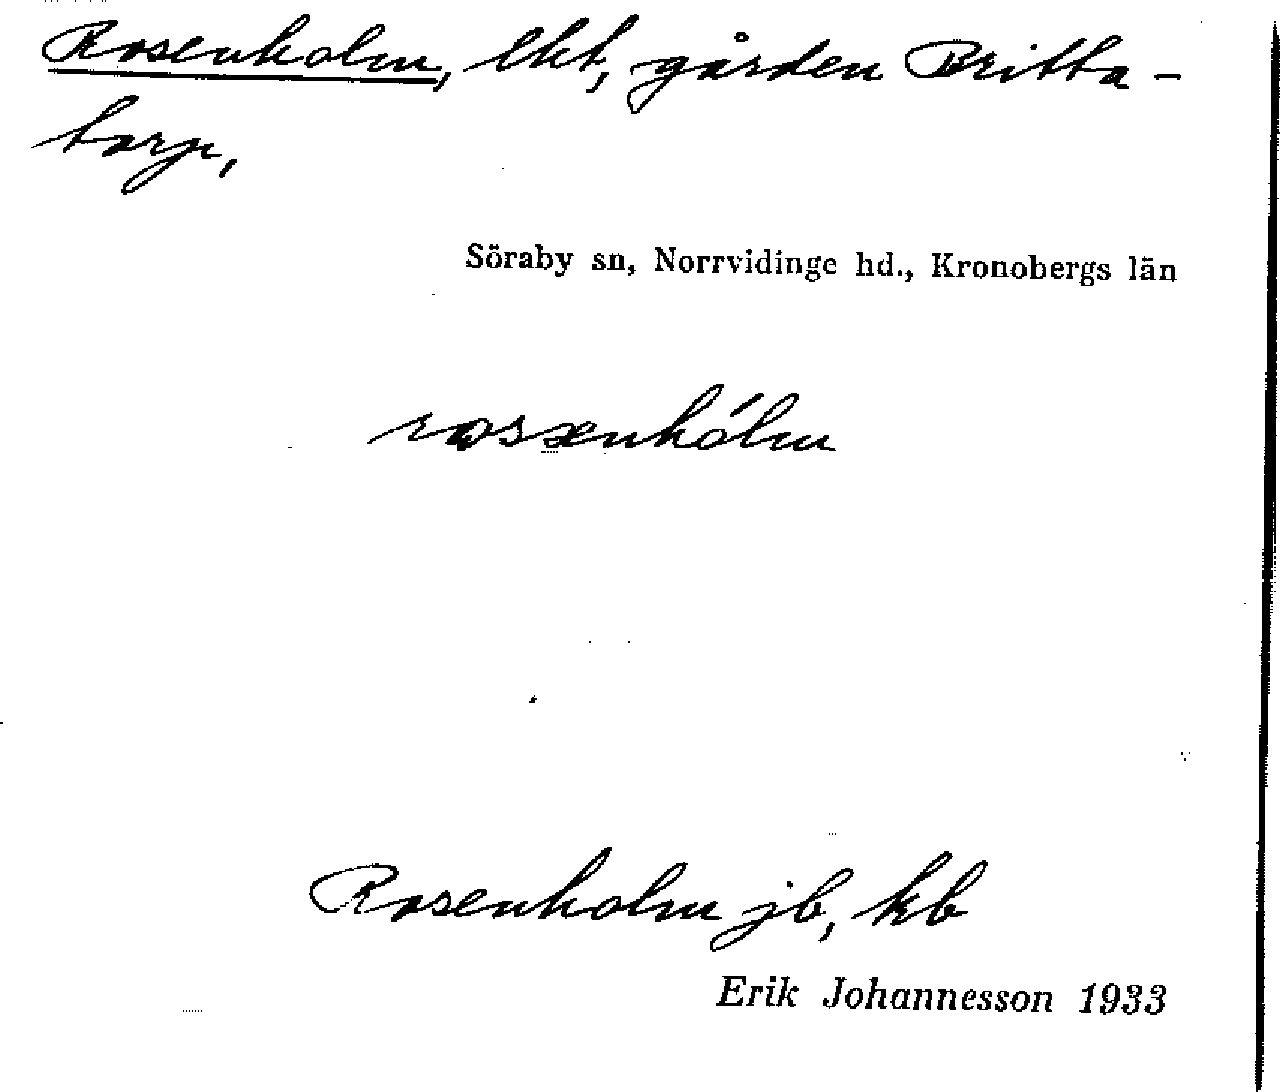 Rosenholm, lht, gården Britta-
torp,
Söraby sn, Norrvidinge hd., Kronobergs län
Rosenholm jb, kb
Erik Johannesson 1933